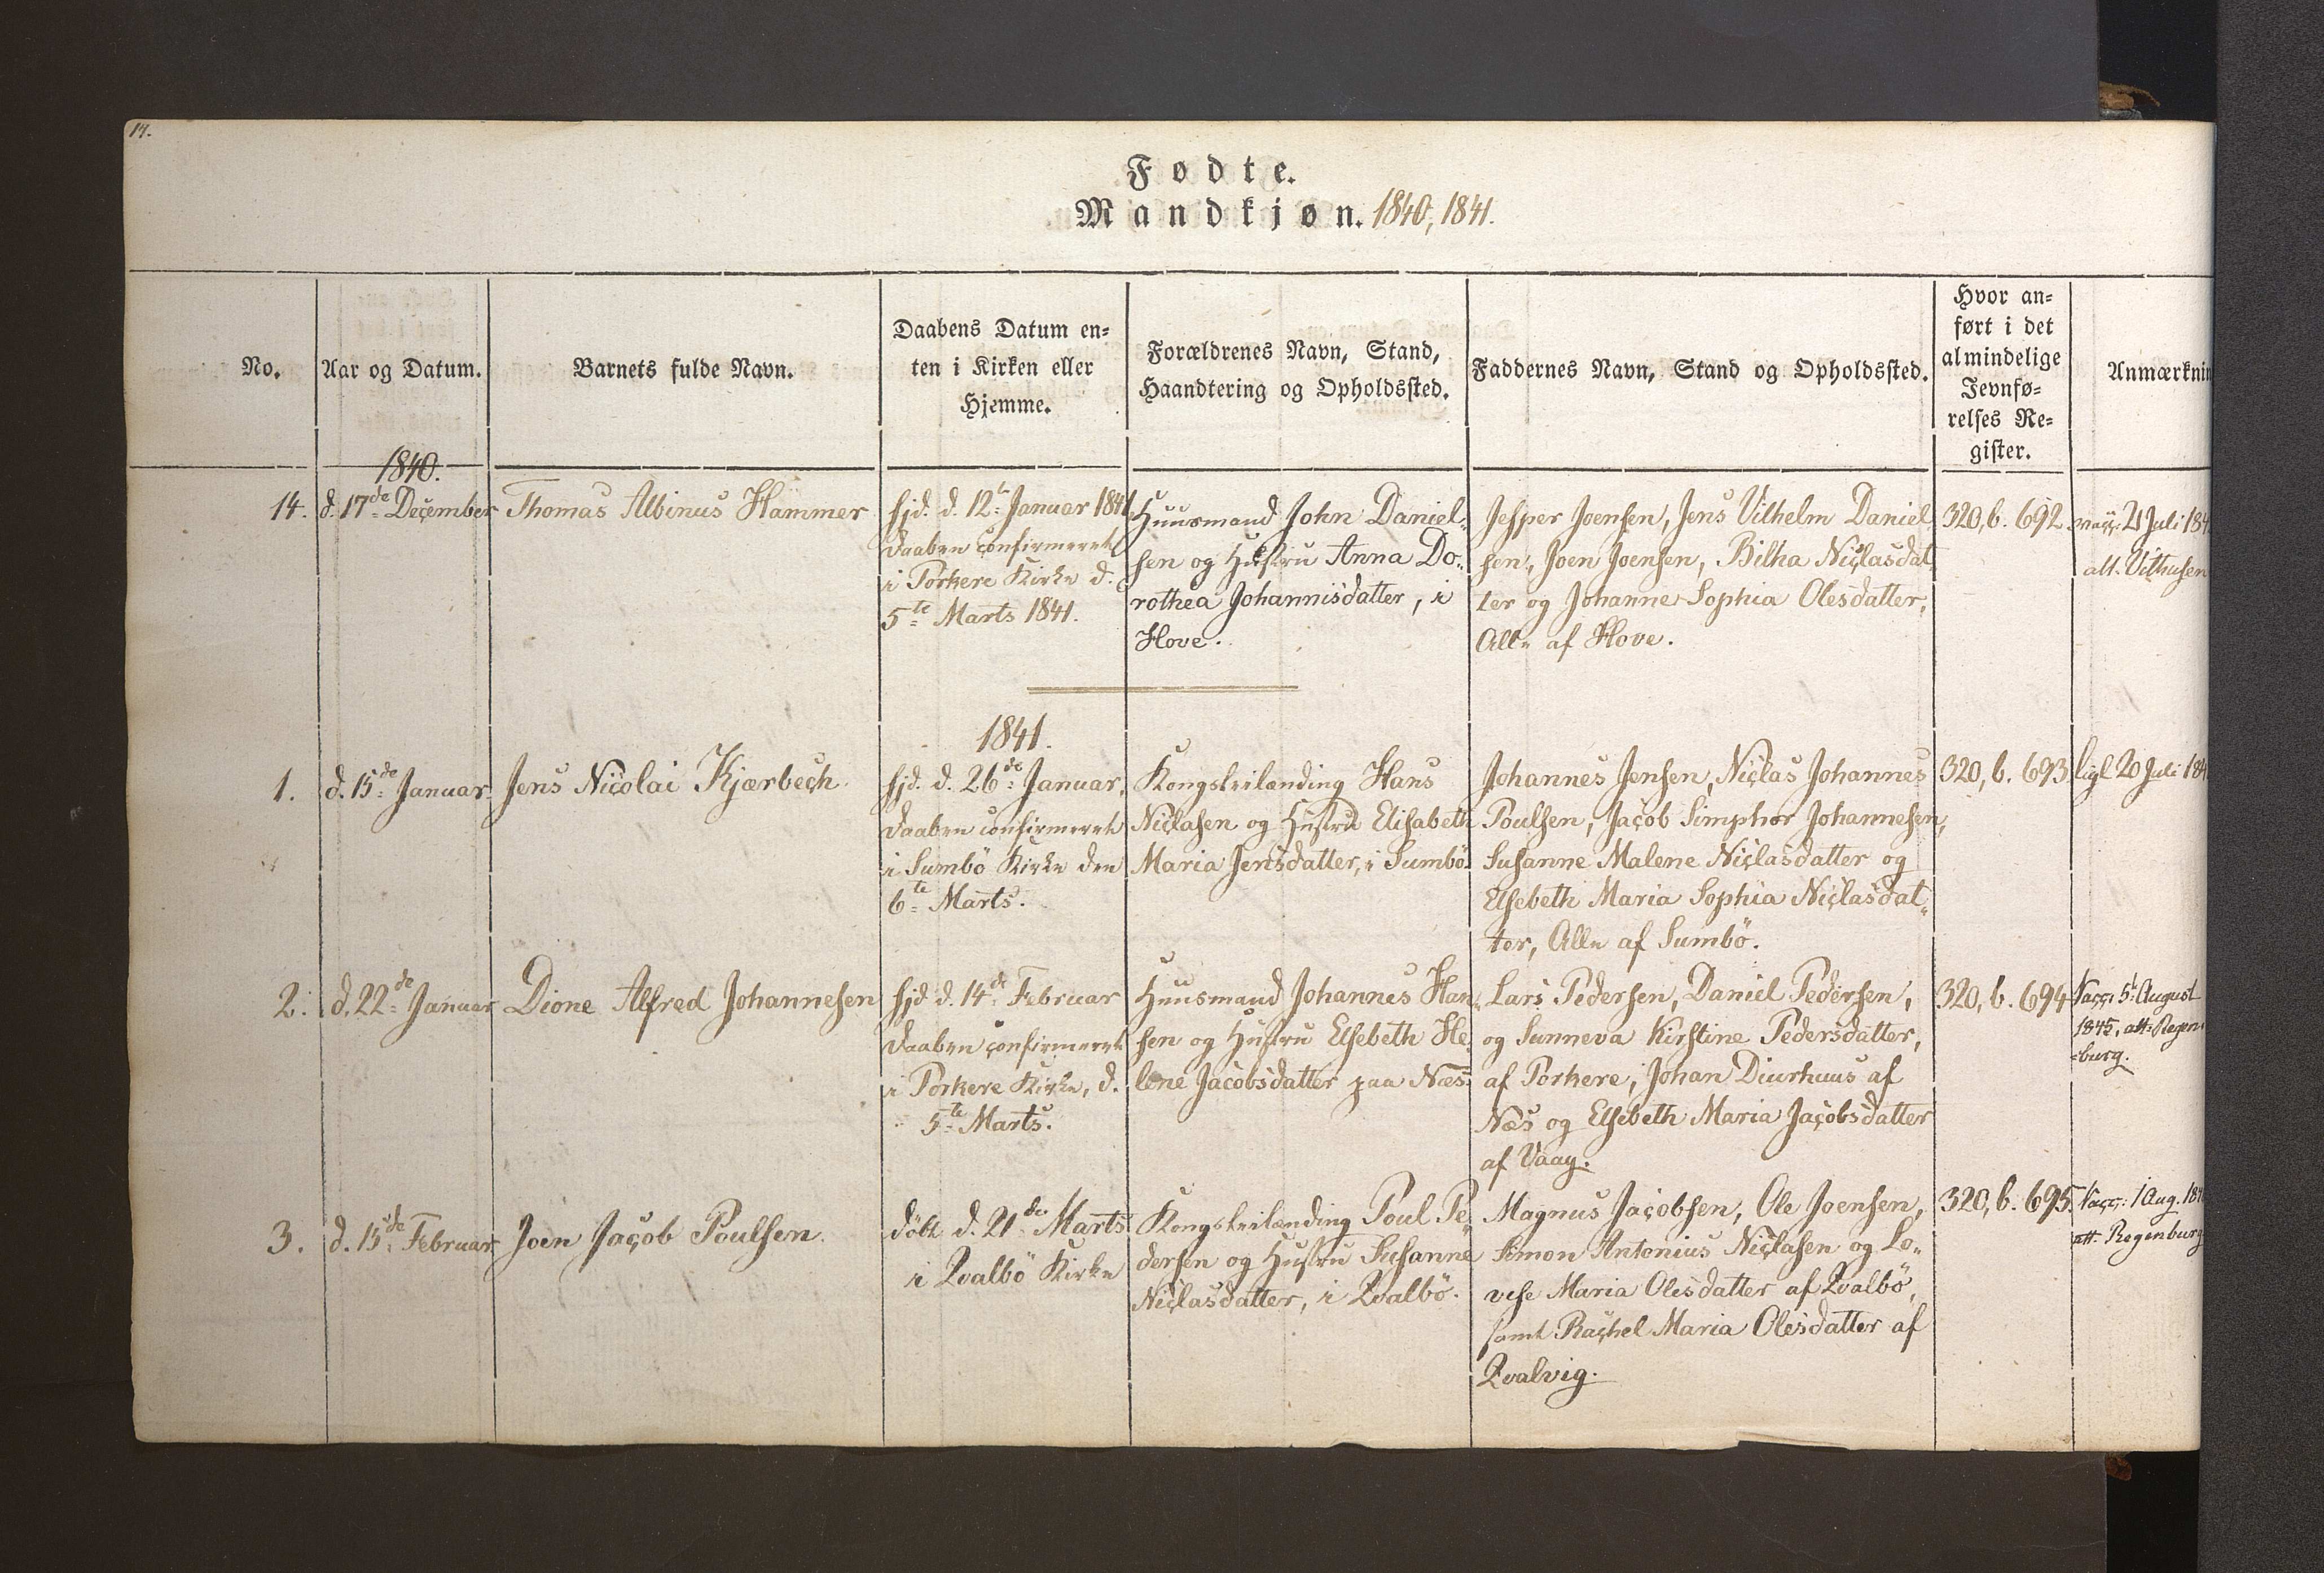 14.
Fødte.
Mandkjøn. 1840, 1841.
No.
Aar og Datum.
Barnets fulde Navn.
Daabens Datum en-
ten i Kirken eller
Hjemme.
Forældrenes Navn, Stand,
Haandtering og Opholdssted.
Faddernes Navn, Stand og Opholdssted.
Hvor an-
ført i det
almindelige
Jevnfø-
relses Re-
gister.
Anmærknin
1840.
14.
d. 17de December
Thomas Albinus Hammer
hjd. d. 12te Januar 1841,
Daaben confirmeret
i Porkere Kirke d.
5te Marts 1841.
Huusmand John Daniel-
sen og Hustru Anna Do-
rothea Johannisdatter, i
Hove.
Jesper Joensen, Jens Vilhelm Daniel-
sen, Joen Joensen, Bilha Niclasdat-
ter og Johanne Sophia Olesdatter,
Alle af Hove.
320, b. 692
vacc. 21 Juli 184
att.
1841.
1.
d. 15de Januar
Jens Nicolai Kjærbech
hjd. d. 26de Januar,
Daaben confirmeret
i Sumbö Kirke den
6te Marts.
Kongsleilænding Hans
Niclasen og Hustru Elisabeth
Maria Jensdatter, i Sumbö.
Johannes Jensen, Niclas Johannes
Poulsen, Jacob Simphor Johannesen,
Susanne Malene Niclasdatter og
Elsebeth Maria Sophia Niclasdat-
ter, Alle af Sumbö.
320, b. 693
ligl 20 Juli 184
2.
d. 22de Januar
Dione Alfred Johannesen
hjd d. 14de Februar
Daaben confirmeret
i Porkere Kirke, d.
5te Marts.
Huusmand Johannes Han-
sen og Hustru Elsebeth He-
lene Jacobsdatter paa Næs
Lars Pedersen, Daniel Pedersen,
og Sunneva Kirstine Pedersdatter,
af Porkere, Johan Diurhuus af
Næs og Elsebeth Maria Jacobsdatter
af Vaag.
320, b. 694
Vacc. 5t August
1845, att. Regen-
-burg.
3.
d. 15de Februar
Joen Jacob Poulsen.
döbt d. 21de Marts
i Qvalbö Kirke
Kongsleilænding Poul Pe-
dersen og Hustru Susanne
Niclasdatter, i Qvalbö.
Magnus Jacobsen, Ole Joensen,
Simon Antonius Niclasen og Lo-
vise Maria Olesdatter af Qvalbö,
samt Rachel Maria Olesdatter af
Qvalvig.
320, b. 695.
Vacc: 1 Aug. 184
att. Regenburg